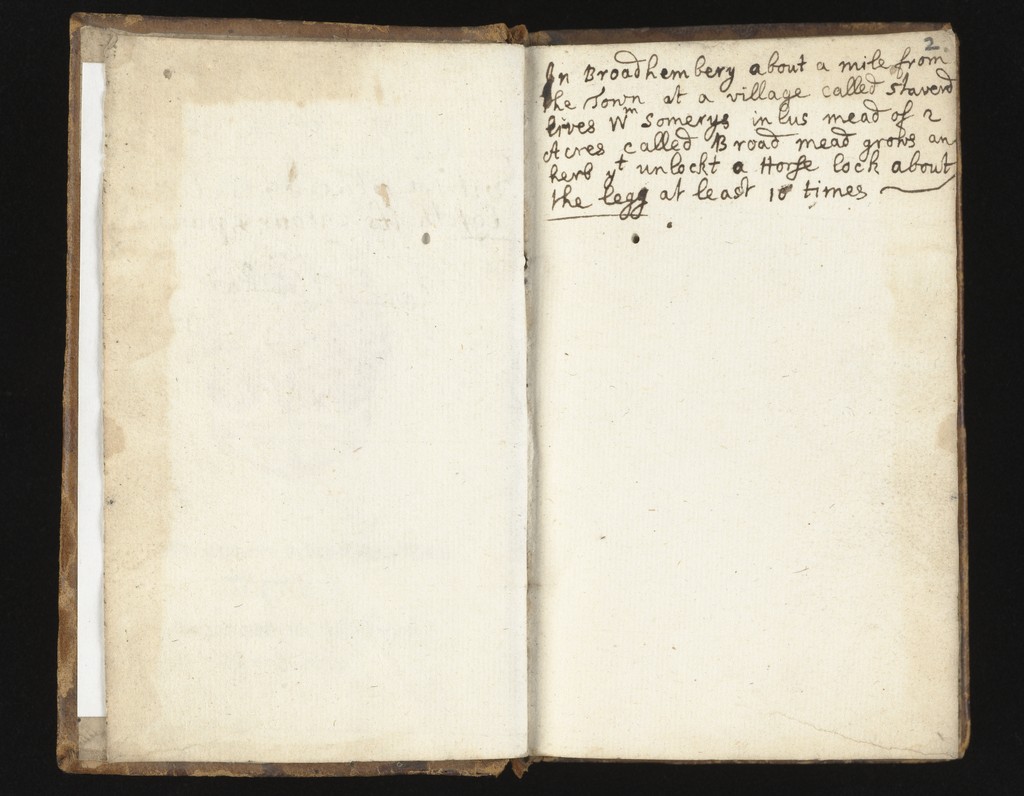 2.
In Broadhembery about a mile from
the Town at a village called Staverd
lives Wm Somerys in hus mead of 2
Acres called Broad mead grows an
herb yt unlockt a Horse lock about
the legg at least 10 times